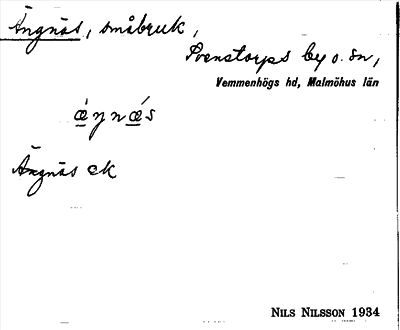 Ängnäs, småbruk,
Svenstorps by o. sn,
Vemmenhögs hd, Malmöhus län
æ̀ŋnǽs
Ängnäs ek
NILS NILSSON 1934